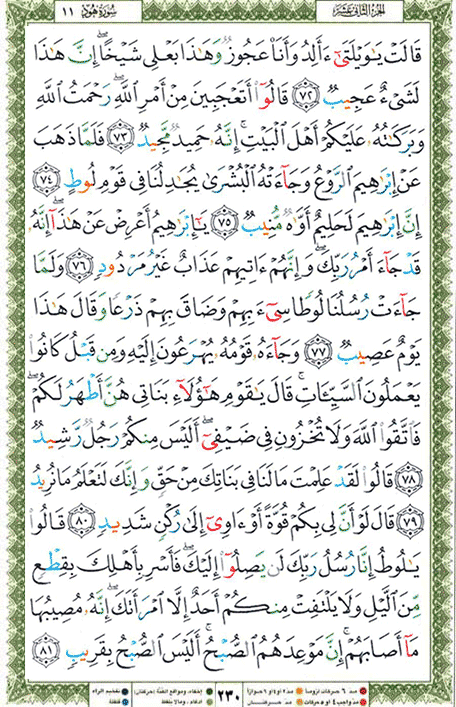 الجزء الثاني عشر سورة هود ١١
قَالَتْ يَٰوَيْلَتَىٰٓ ءَأَلِدُ وَأَنَا۠ عَجُوزٌ وَهَٰذَا بَعْلِى شَيْخًا إِنَّ هَٰذَا
لَشَىْءٌ عَجِيبٌ ٧٢ قَالُوٓا۟ أَتَعْجَبِينَ مِنْ أَمْرِ ٱللَّهِ رَحْمَتُ ٱللَّهِ
وَبَرَكَٰتُهُۥ عَلَيْكُمْ أَهْلَ ٱلْبَيْتِ إِنَّهُۥ حَمِيدٌ مَّجِيدٌ ٧٣ فَلَمَّا ذَهَبَ
عَنْ إِبْرَٰهِيمَ ٱلرَّوْعُ وَجَآءَتْهُ ٱلْبُشْرَىٰ يُجَٰدِلُنَا فِى قَوْمِ لُوطٍ ٧٤
إِنَّ إِبْرَٰهِيمَ لَحَلِيمٌ أَوَّٰهٌ مُّنِيبٌ ٧٥ يَٰٓإِبْرَٰهِيمُ أَعْرِضْ عَنْ هَٰذَآ إِنَّهُۥ
قَدْ جَآءَ أَمْرُ رَبِّكَ وَإِنَّهُمْ ءَاتِيهِمْ عَذَابٌ غَيْرُ مَرْدُودٍ ٧٦ وَلَمَّا
جَآءَتْ رُسُلُنَا لُوطًا سِىٓءَ بِهِمْ وَضَاقَ بِهِمْ ذَرْعًا وَقَالَ هَٰذَا
يَوْمٌ عَصِيبٌ ٧٧ وَجَآءَهُۥ قَوْمُهُۥ يُهْرَعُونَ إِلَيْهِ وَمِن قَبْلُ كَانُوا۟
يَعْمَلُونَ ٱلسَّيِّـَٔاتِ قَالَ يَٰقَوْمِ هَٰٓؤُلَآءِ بَنَاتِى هُنَّ أَطْهَرُ لَكُمْ
فَٱتَّقُوا۟ ٱللَّهَ وَلَا تُخْزُونِ فِى ضَيْفِىٓ أَلَيْسَ مِنكُمْ رَجُلٌ رَّشِيدٌ
٧٨ قَالُوا۟ لَقَدْ عَلِمْتَ مَا لَنَا فِى بَنَاتِكَ مِنْ حَقٍّ وَإِنَّكَ لَتَعْلَمُ مَا نُرِيدُ
٧٩ قَالَ لَوْ أَنَّ لِى بِكُمْ قُوَّةً أَوْ ءَاوِىٓ إِلَىٰ رُكْنٍ شَدِيدٍ ٨٠ قَالُوا۟
يَٰلُوطُ إِنَّا رُسُلُ رَبِّكَ لَن يَصِلُوٓا۟ إِلَيْكَ فَأَسْرِ بِأَهْلِكَ بِقِطْعٍ
مِّنَ ٱلَّيْلِ وَلَا يَلْتَفِتْ مِنكُمْ أَحَدٌ إِلَّا ٱمْرَأَتَكَ إِنَّهُۥ مُصِيبُهَا
مَآ أَصَابَهُمْ إِنَّ مَوْعِدَهُمُ ٱلصُّبْحُ أَلَيْسَ ٱلصُّبْحُ بِقَرِيبٍ ٨١
٢٣٠